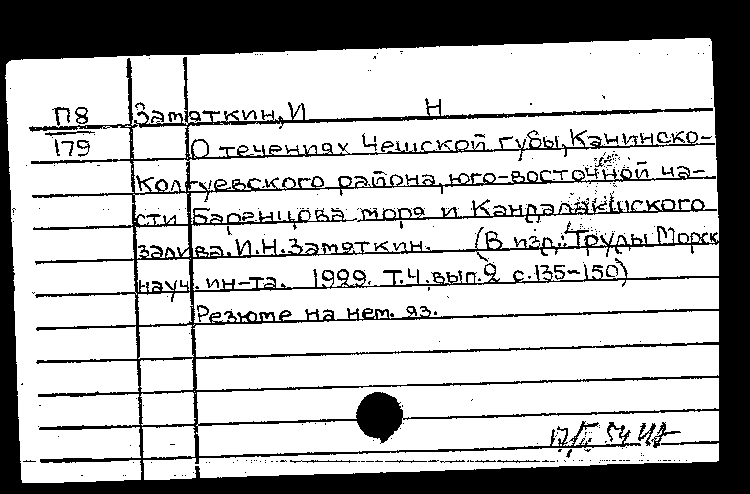 П8 Замяткин, И Н
179 О течениях Чешской губы, Канинско-
Колгуевского района, юго-восточной ча-
сти Баренцова моря и Кандалакшского
залива. И.Н.Замяткин. (В изд.: Труды Морск
науч. ин-та. 1929. Т.4, вып.2 с.135-150)
Резюме на нем. яз.
54